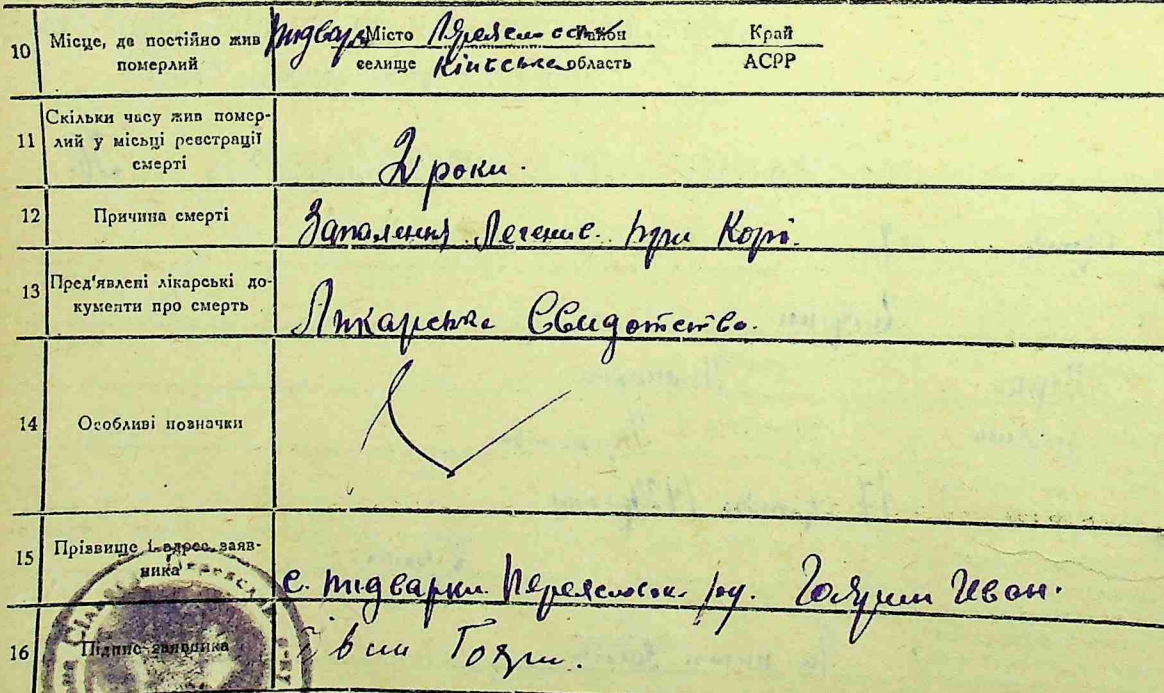 10 Місце, де постійно жив Підварк Місто Переяславськ Район Край
померлий селище Київська область АСРР
Скільки часу жив помер-
11 лий у місці реєстрації
смерті 2 роки.
12 Причина смерті Запалення Легенив. при Корі.
13 Пред'явлені лікарські до-
кументи про смерть Ликарске Свидотство.
14 Особливі позначки
15 Прізвище і адрес заяв-
ника с. підварки Переяславск. Иван.
16 Підпис заявника